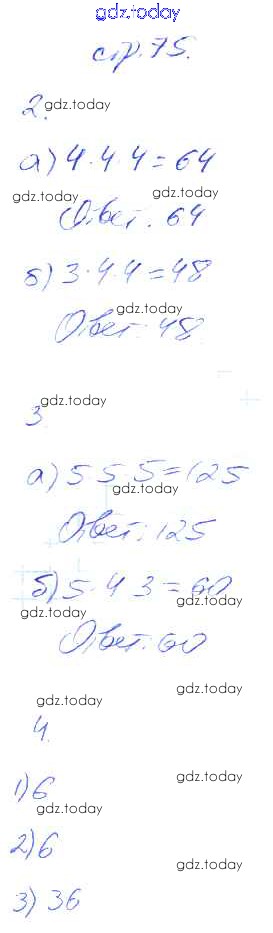 gdz.today
стр. 75.
2.
gdz.today
а) 4·4·4=64
gdz.today gdz.today
Ответ: 64
б) 3·4·4=48
gdz.today
Ответ: 48
gdz.today
3
а) 5 5 5=125
gdz.today
Ответ: 125
б) 5·4 3=60
gdz.today
gdz.today
Ответ: 60
gdz.today
gdz.today
4.
gdz.today
1) 6
gdz.today
2) 6
gdz.today
3) 36